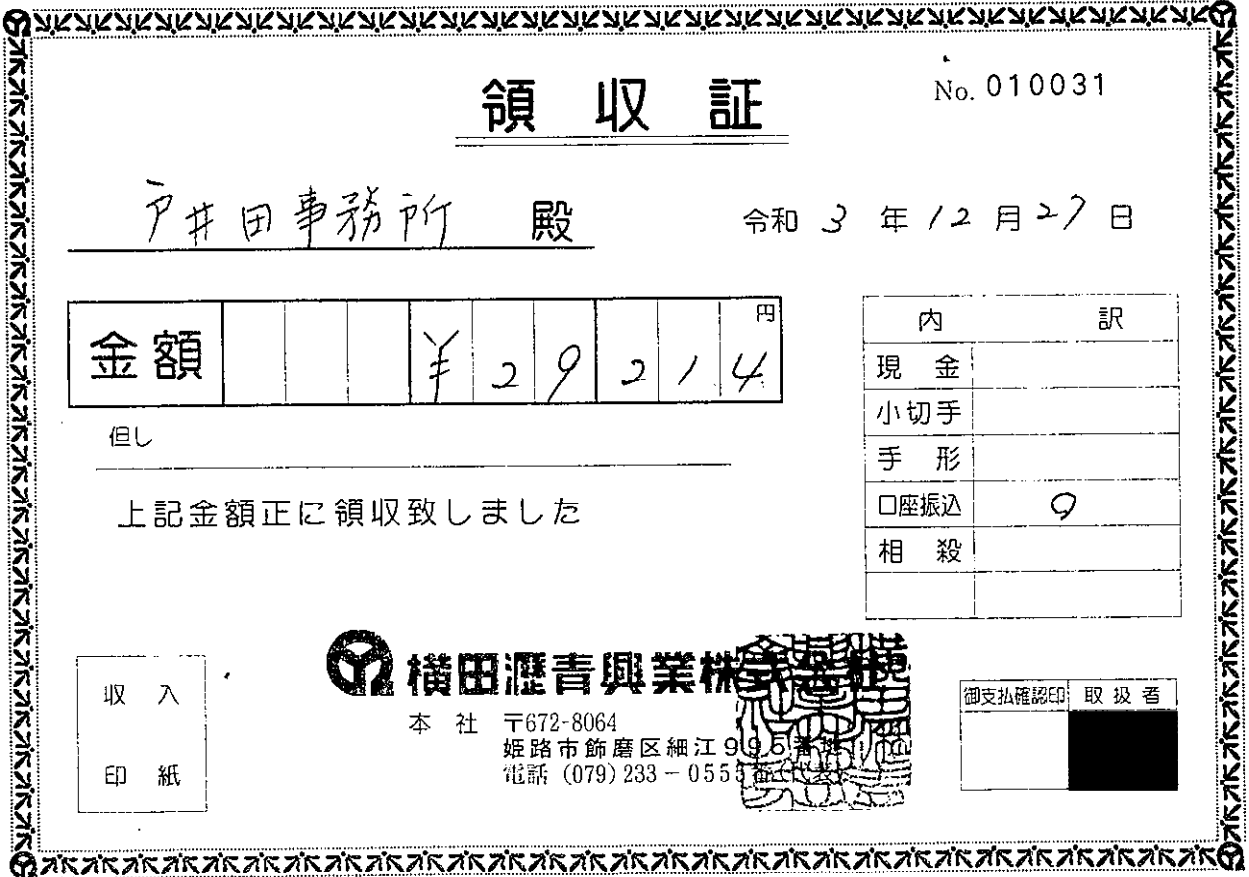 領収証
No. 010031
戸井田事務所 殿
令和 3 年 12 月 27 日
金額 ¥ 2 9 2 1 4 円
但し
上記金額正に領収致しました
内訳
現金
小切手
手形
口座振込 ○
相殺
収入
印紙
横田瀝青興業株式会社
本社 〒672-8064
姫路市飾磨区細江995番地
電話 (079) 233-0555番(代表)
御支払確認印 取扱者